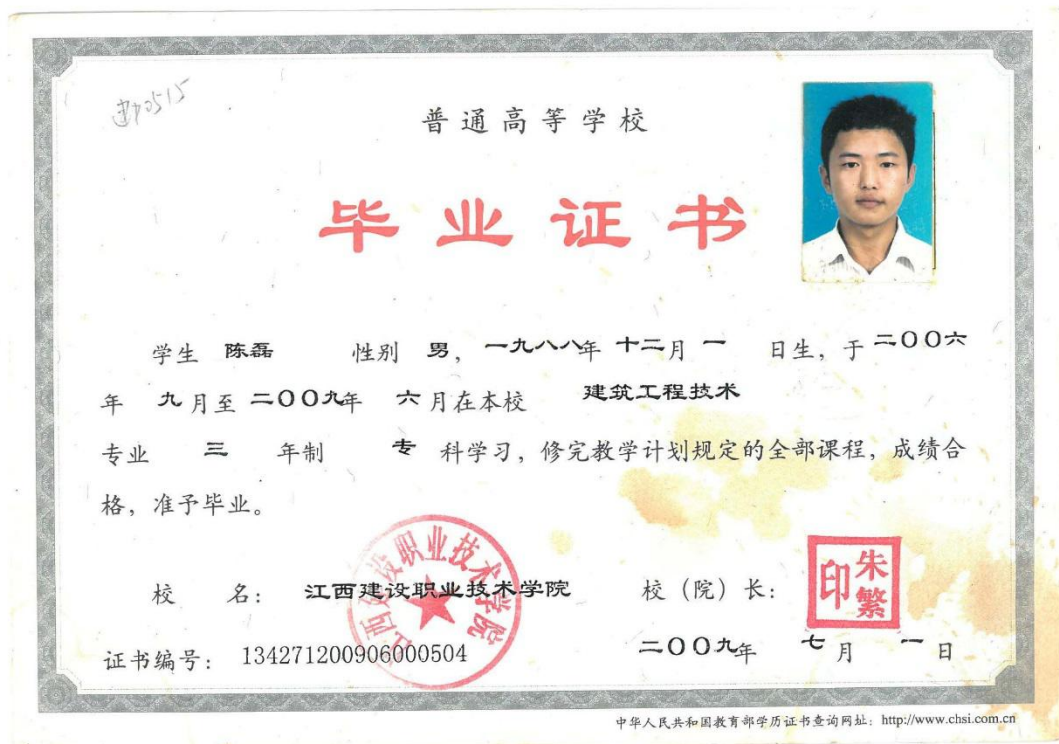 普通高等学校
毕业证书
学生 陈磊 性别 男，一九八八年 十二月 一 日生，于 二〇〇六
年 九月至 二〇〇九年 六月在本校 建筑工程技术
专业 三 年制 专 科学习，修完教学计划规定的全部课程，成绩合
格，准予毕业。
江西建设职业技术学院
校 名： 江西建设职业技术学院 校（院）长：
朱繁印
证书编号： 134271200906000504 二〇〇九年 七月 一日
中华人民共和国教育部学历证书查询网址：http://www.chsi.com.cn